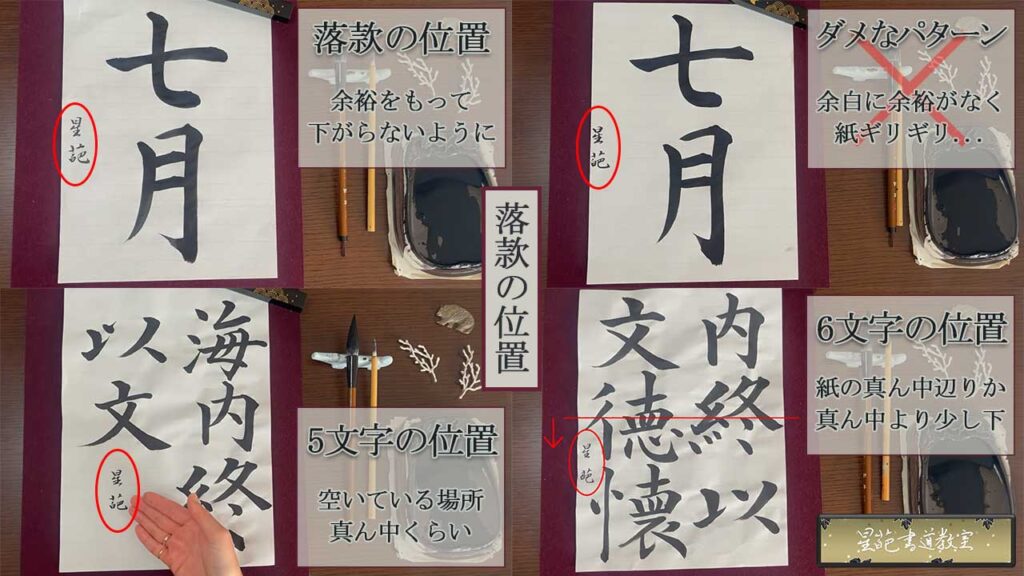 七月
星葩
落款の位置
余裕をもって
下がらないように
七月
星葩
ダメなパターン
余白に余裕がなく
紙ギリギリ...
落款の位置
海内終
以文
星葩
5文字の位置
空いている場所
真ん中くらい
内終以
文徳懐
星葩
6文字の位置
紙の真ん中辺りか
真ん中より少し下
星葩書道教室